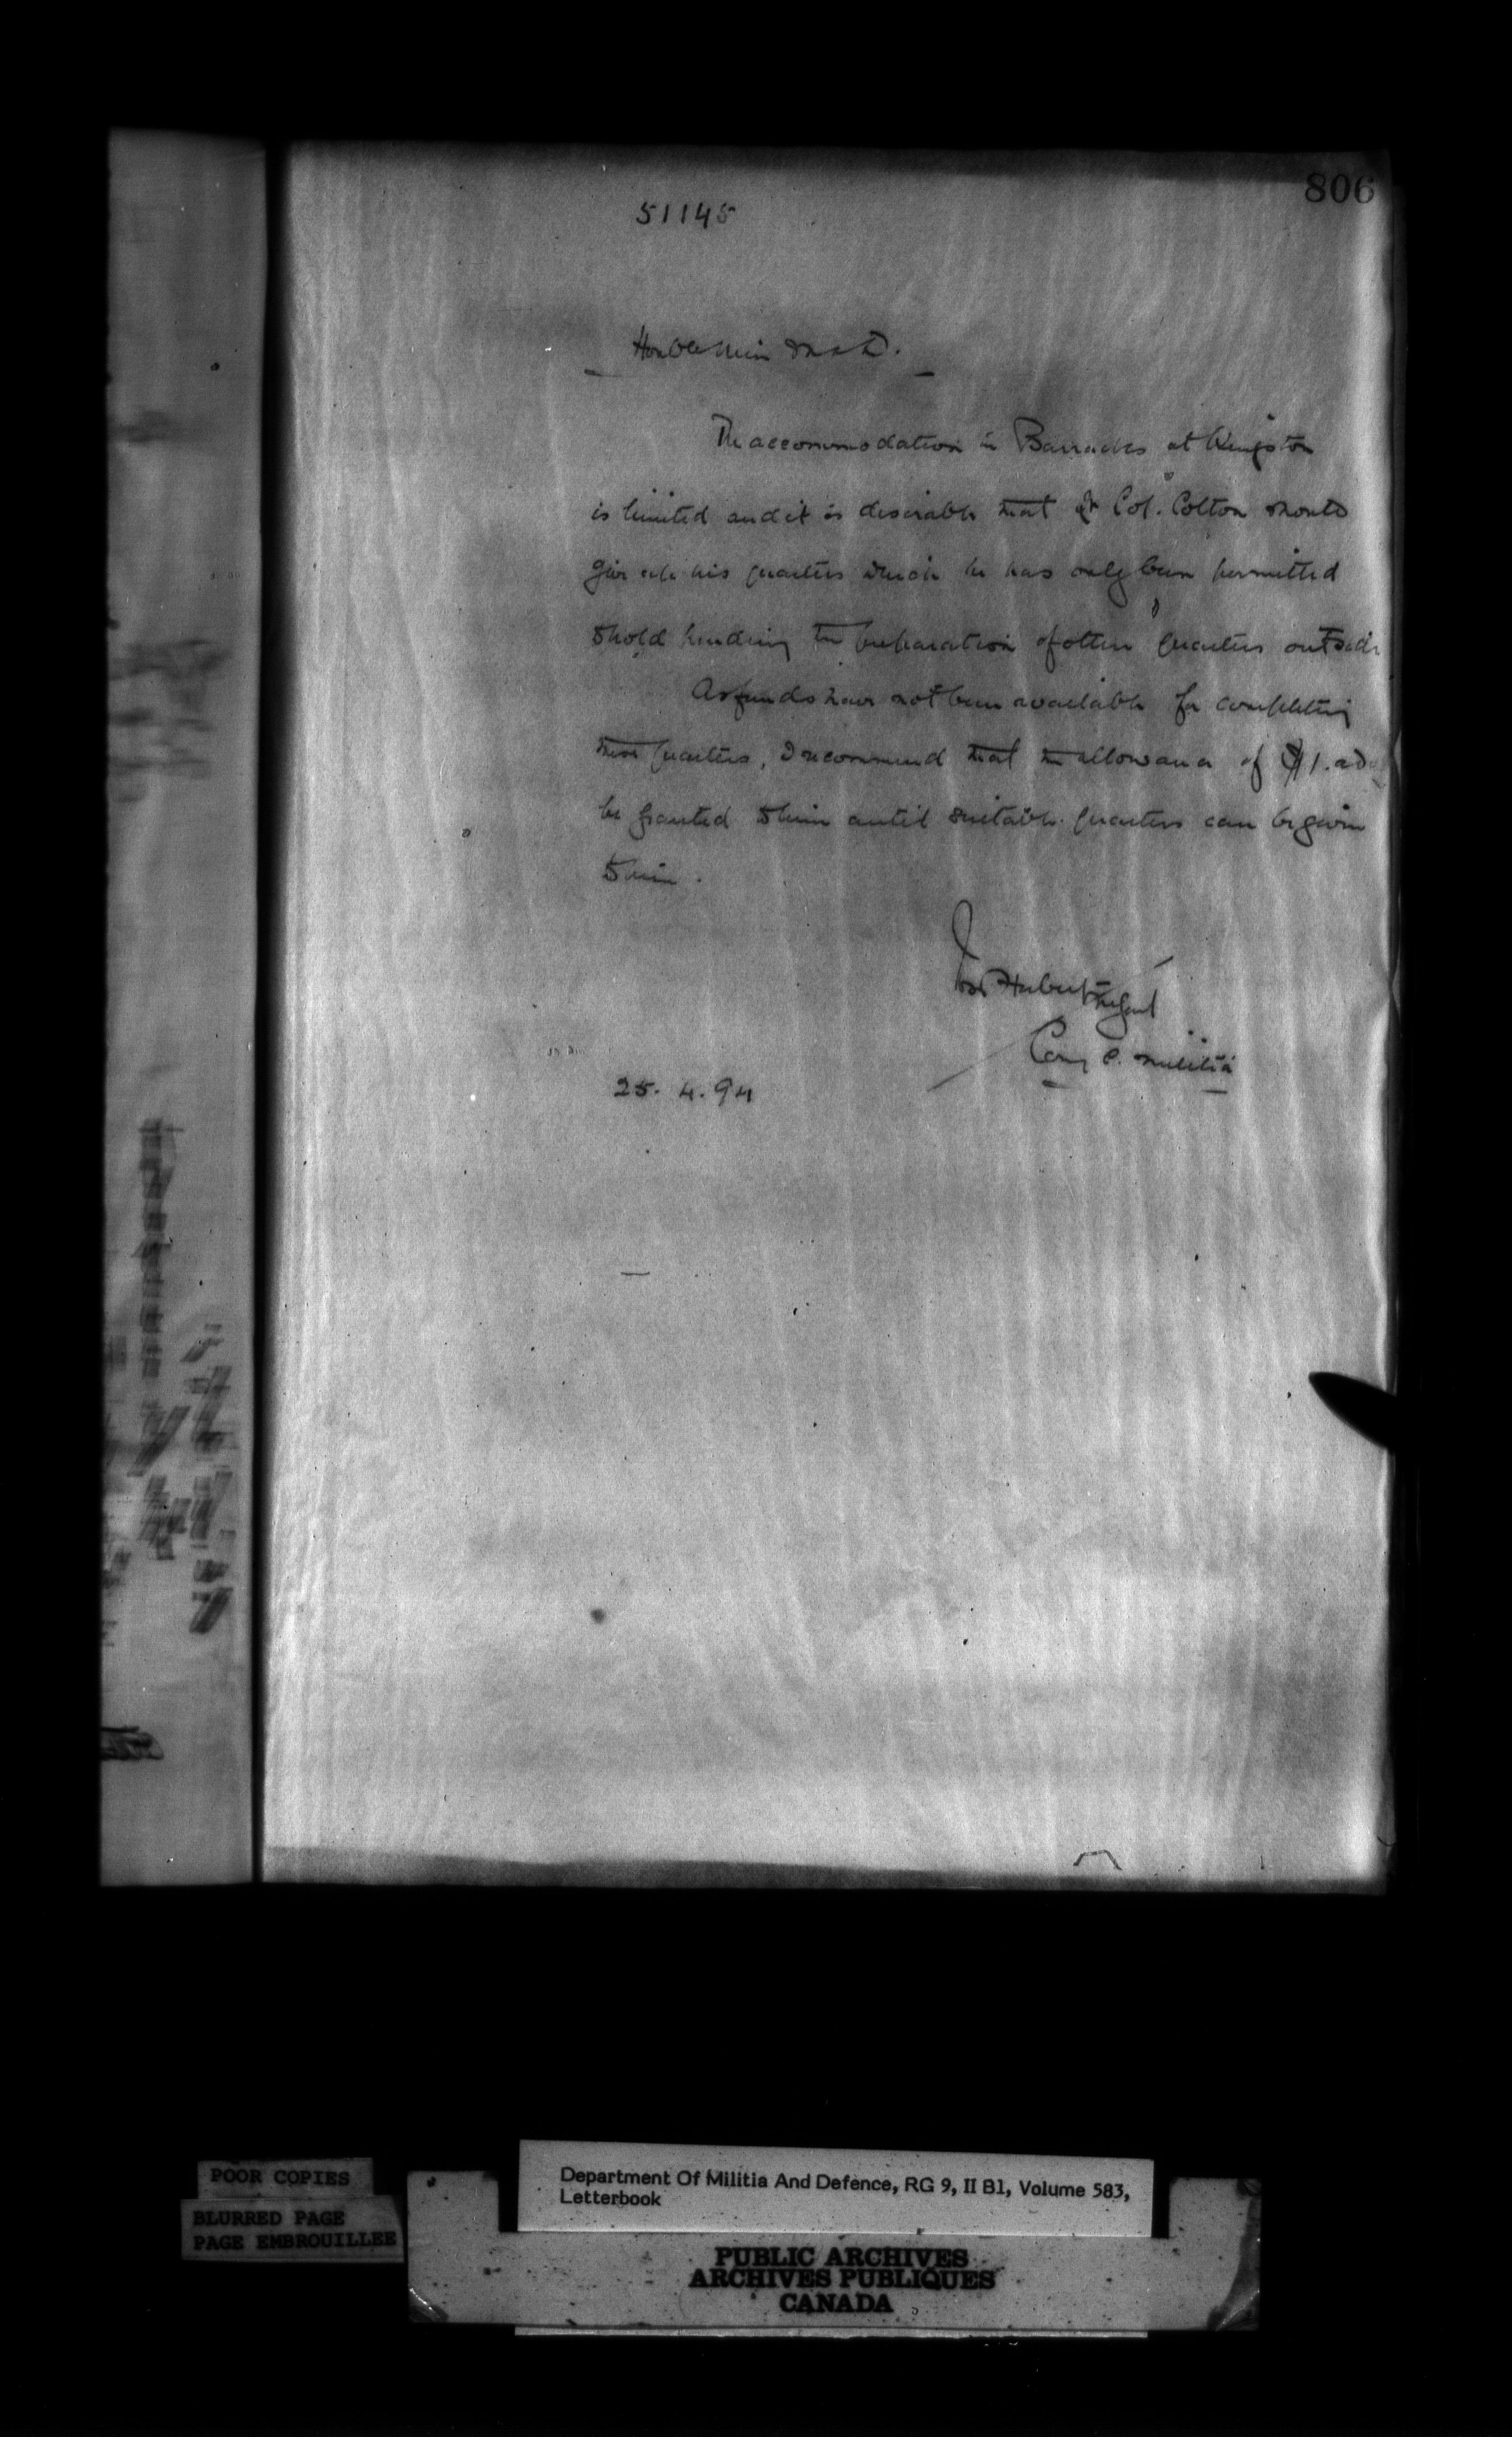 806
51145
Honble Min M & D.
The accommodation in Barracks at Kingston
is limited and it is desirable that Lt Col. Cotton should
give up his quarters which he has only been permitted
to hold pending the preparation of other quarters outside
As funds have not been available for completing
these quarters, I recommend that the allowance of $1. a day
be granted to him until suitable quarters can be given
to him.
Ivor Herbert
Comg C. Militia
25. 4. 94
POOR COPIES
BLURRED PAGE
PAGE EMBROUILLEE
Department Of Militia And Defence, RG 9, II B1, Volume 583,
Letterbook
PUBLIC ARCHIVES
ARCHIVES PUBLIQUES
CANADA